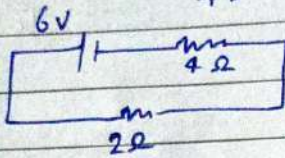 6V
4 Ω
2Ω